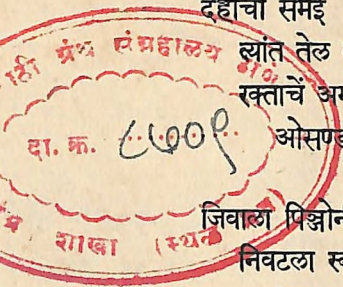 देहाची समई
त्यांत तेल
रक्ताचें
जिवाला पिञ्जोन
निवटला
ग्रंथ संग्रहालय
दा. क्र. ८७०९
शाखा (स्थल